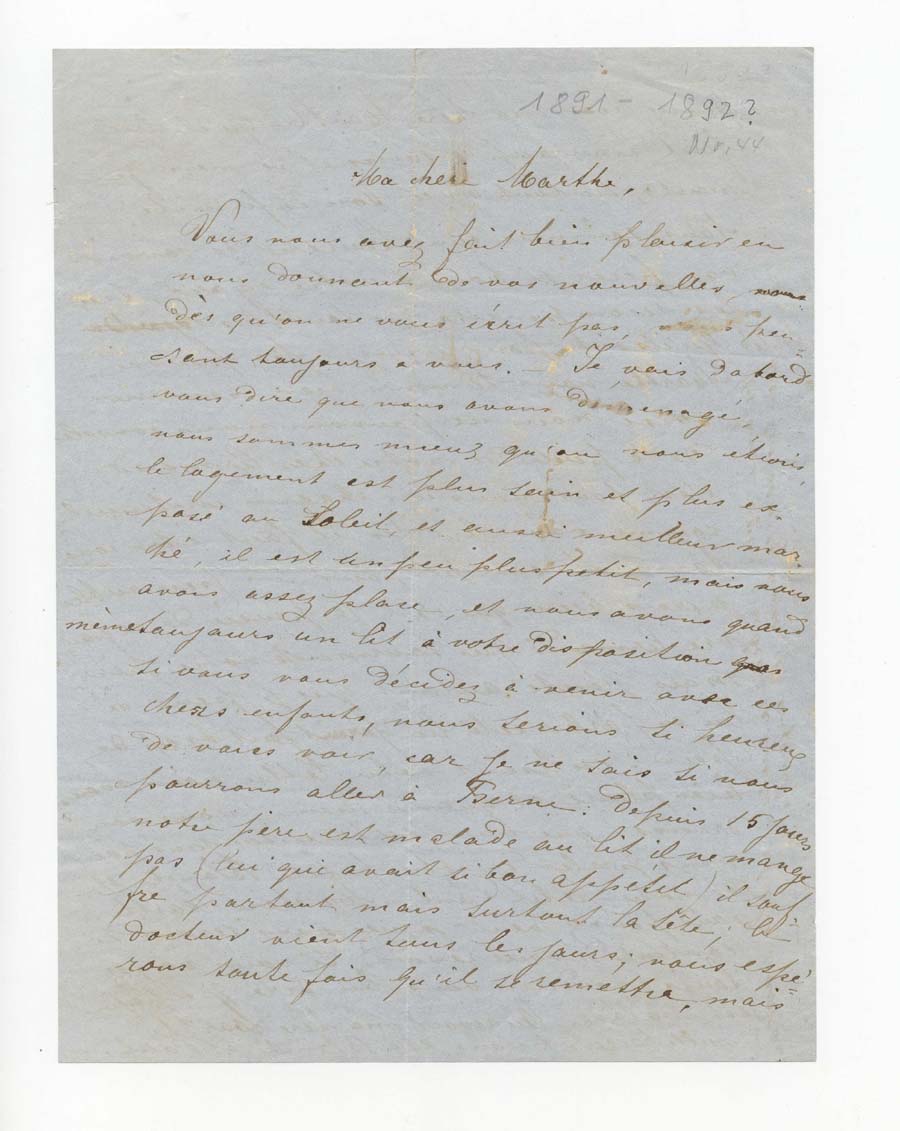 1891 - 1892?
Nr. 44
Ma chere Marthe,
Vous nous avez fait bien plaisir en
nous donnant de vos nouvelles,
dès qu'on ne vous écrit pas, pen=
sant toujours a vous. — Je vais dabord
vous dire que nous avons demenagé,
nous sommes mieux qu'ou nous étions
le logement est plus sain et plus ex-
posé au Soleil, et aussi meilleur mar-
ché, il est un peu plus petit, mais nous
avons assez place, et nous avons quand
mème toujours un lit à votre disposition
si vous vous décidez à venir avec ces
chers enfants, nous serions si heureux
de vous voir, car je ne sais si nous
pourrons aller à Berne. depuis 15 jours
notre père est malade au lit il ne mange
pas (lui qui avait si bon appétit) il souf-
fre partout mais surtout la tête, le
docteur vient tous les jours; nous espé=
rons toute fois qu'il se remettra, mais